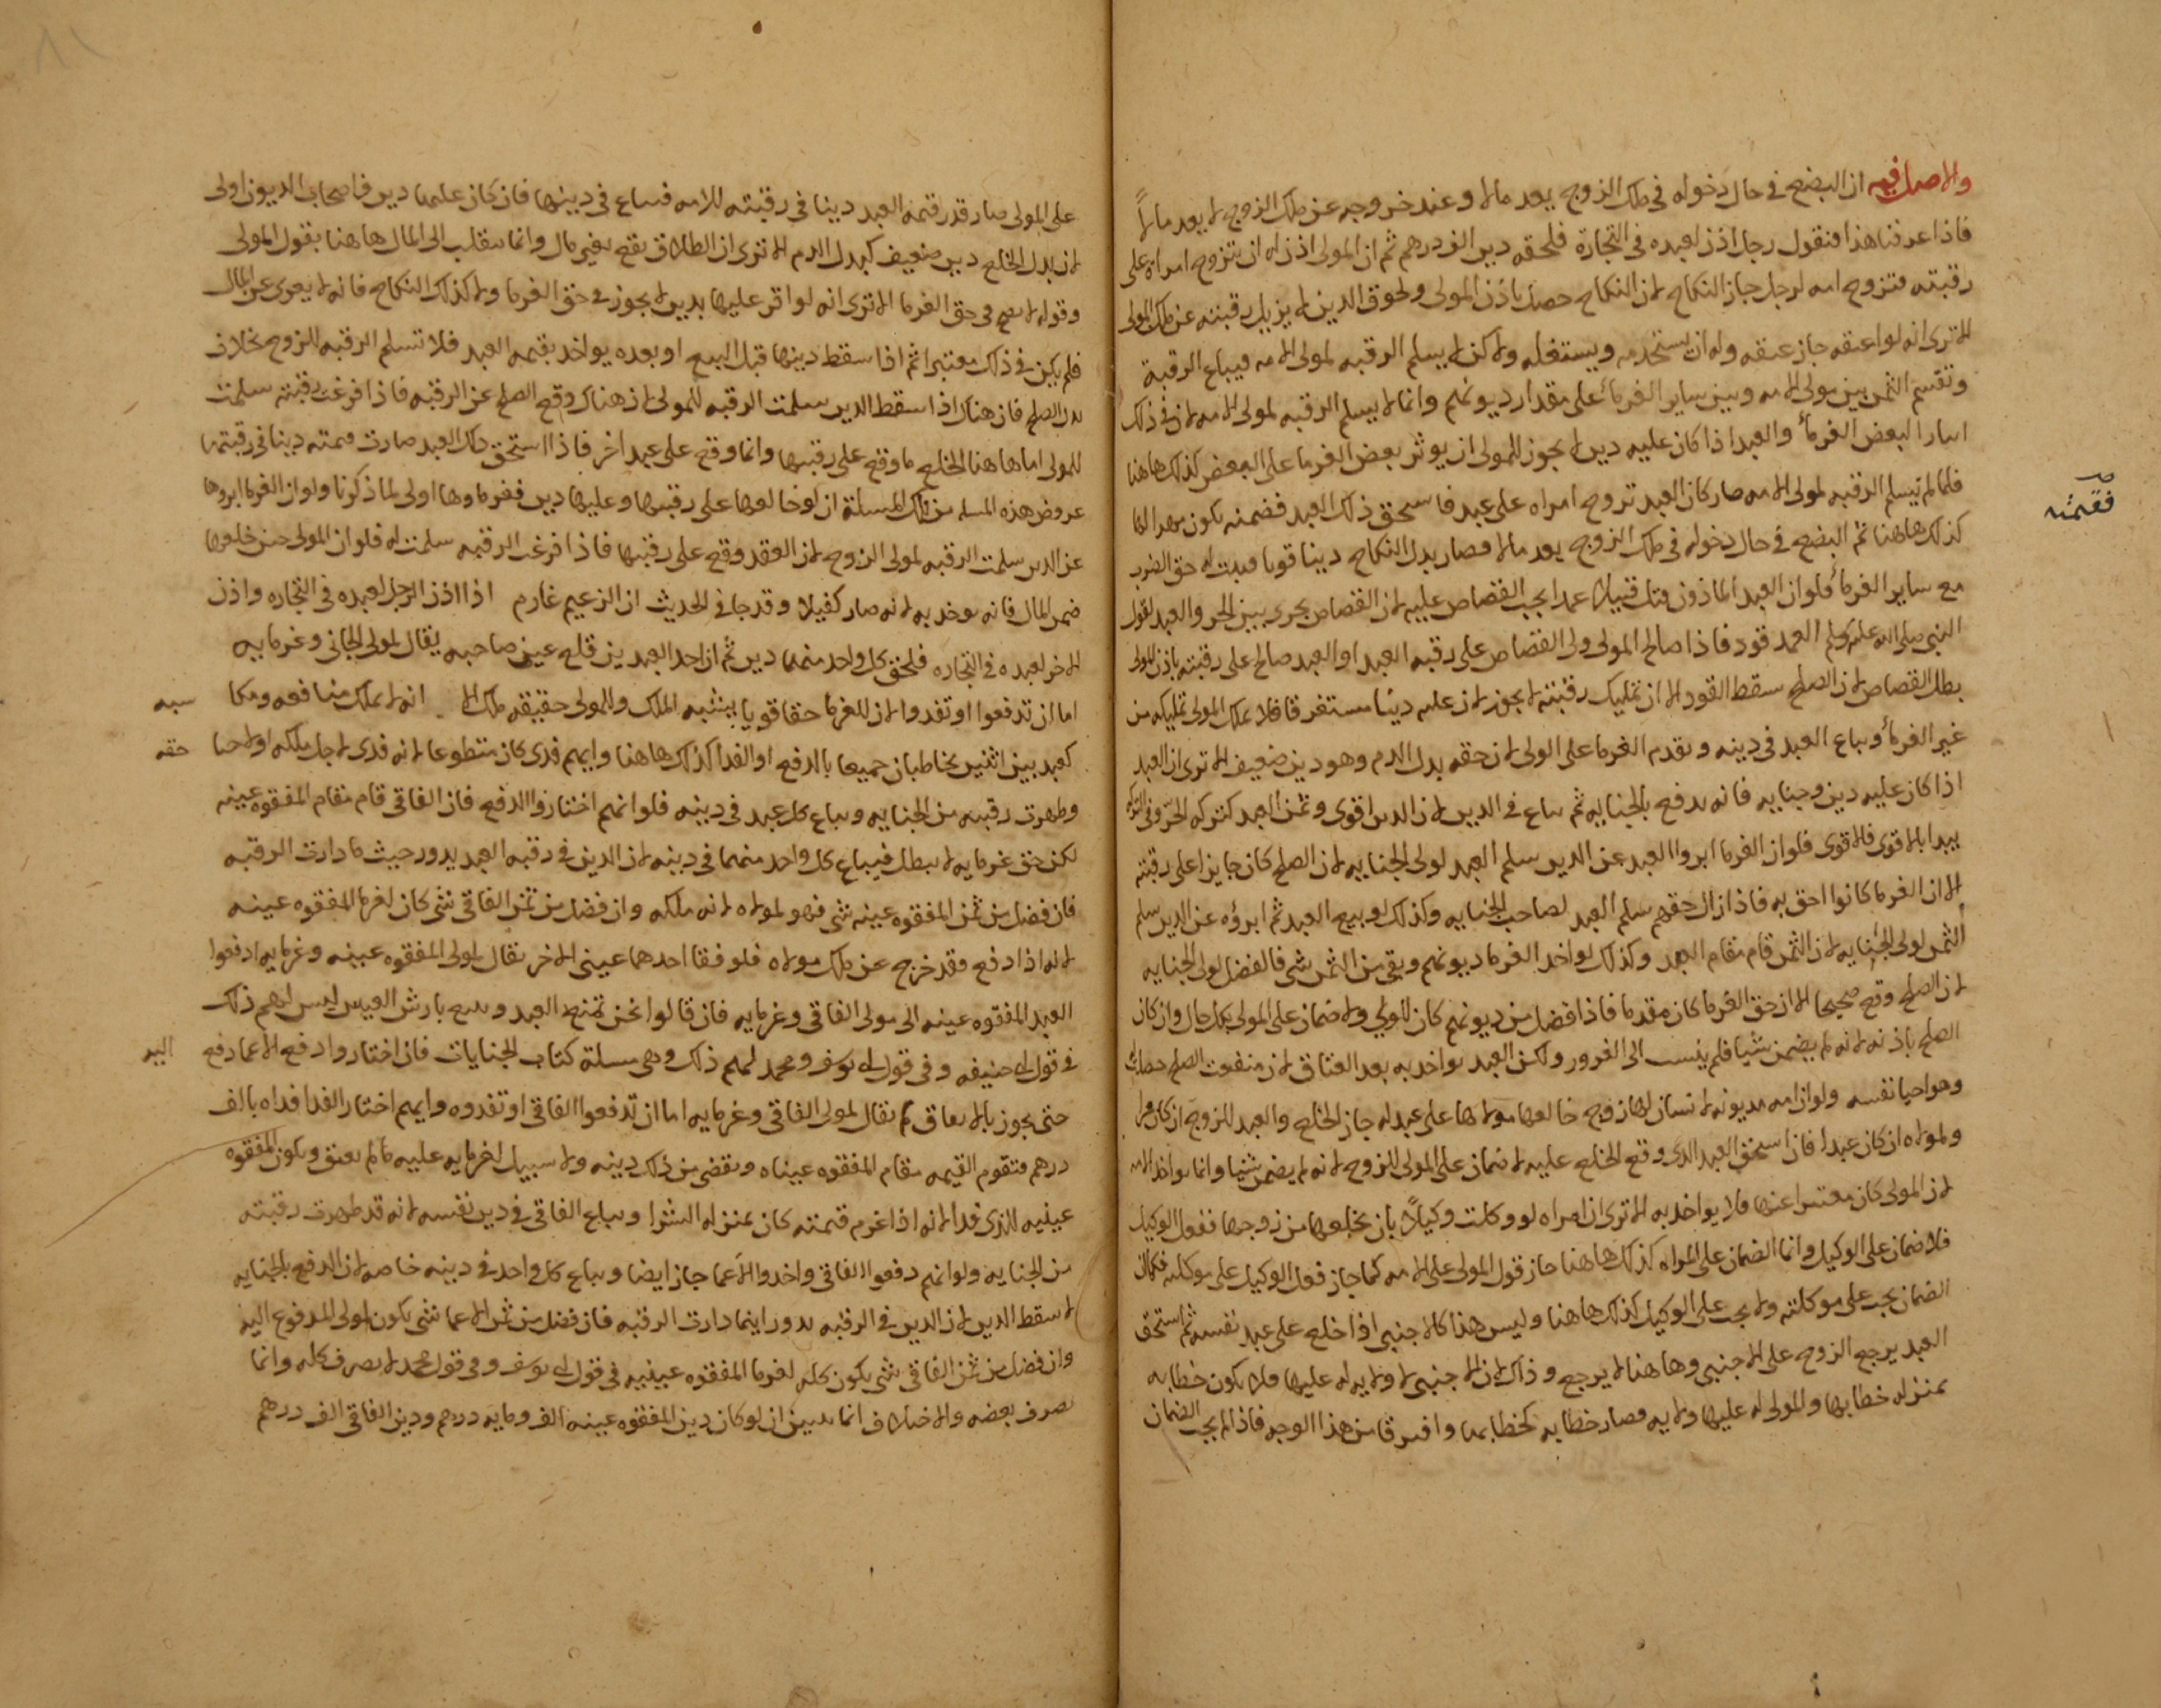 والاصل فيه ان البضع في حال دخوله في ملك الزوج يعد مالا وعند خروجه عن ملك الزوج لا يعد مالاً
فاذا عرفنا هذا فنقول رجل اذن لعبده في التجارة فلحقه دين الف درهم ثم ان المولى اذن له ان يتزوج امراه على
رقبته فتزوج امه لرجل جاز النكاح لان النكاح حصل باذن المولى ولحوق الدين لا يزيل رقبته عن ملك المولى
الا ترى انه لو اعتقه جاز عتقه وله ان يستخدمه ويستغله ولا كن لا يسلم الرقبه لمولى الامه فيباع الرقبة
وتقسم الثمن بين مولى الامه وبين ساير الغرمأ على مقدار ديونهم وانما لا يسلم الرقبه لمولى الامه لان في ذلك
ايثار البعض الغرمأ والعبد اذا كان عليه دين لا يجوز للمولى ان يوثر بعض الغرما على البعض كذلك هاهنا
فلما لم يسلم الرقبه لمولى الامه صار كان العبد تزوج امراه على عبد فاستحق ذلك العبد فضمنه يكون مهرا لها
فقيمته
كذلك هاهنا ثم البضع في حال دخوله في ملك الزوج يعد مالا فصار بدل النكاح دينا قويا فيثبت له حق الضرب
مع ساير الغرمأ فلو ان العبد الماذون قتل قتيلا عمدا يجب القصاص عليه لان القصاص يجرى بين الحر والعبد لقول
النبي صلى الله عليه وسلم العمد قود فاذا صالح المولى ولى القصاص على رقبه العبد او العبد صالح على رقبته باذن المولى
بطل القصاص لان الصلح سقط القود الا ان تمليك رقبته لا يجوز لان عليه دينا مستغرقا فلا يملك المولى تمليكه من
غير الغرمأ ويباع العبد في دينه ويقدم الغرما على الولى لان حقه بدل الدم وهو دين ضعيف الا ترى ان العبد
اذا كان عليه دين وجنايه فانه يدفع بالجنايه ثم يباع في الدين لان الدين اقوى وثمن العبد كتركه الحر وفي التركه
يبدا بالاقوى فالاقوى فلو ان الغرما ابروا العبد عن الدين سلم العبد لولى الجنايه لان الصلح كان جايزا على رقبته
الا ان الغرما كانوا احق به فاذا زال حقهم سلم العبد لصاحب الجنايه وكذلك لو بيع العبد ثم ابروه عن الدين سلم
الثمن لولى الجنايه لان الثمن قام مقام العبد وكذلك لو اخذ الغرما ديونهم وبقى من الثمن شى فالفضل لولى الجنايه
لان الصلح وقع صحيحا الا ان حق الغرما كان مقدما فاذا فضل من ديونهم كان للولي ولا ضمان على المولى بكل حال وان كان
الصلح باذنه لانه لم يضمن شيا فلم ينسب الى الغرور ولكن العبد يواخذ به بعد العتاق لان منفعت الصلح حصلت له
وهو احيا نفسه ولو ان امه مديونه لانسان لها زوج خالعها مولاها على عبد له جاز الخلع والعبد للزوج ان كان حرا
ولمولاه ان كان عبدا فان استحق العبد الذى وقع الخلع عليه لا ضمان على المولى للزوج لانه لم يضمن شيا وانما يواخذ الامه
لان المولى كان معتبرا عنها فلا يواخذ به الا ترى ان امراه لو وكلت وكيلاً بان يخلعها من زوجها ففعل الوكيل
فلا ضمان على الوكيل وانما الضمان على المراه كذلك هاهنا جاز قول المولى على الامه كما جاز فعل الوكيل على موكلته فكان
الضمان يجب على موكلته ولا يجب على الوكيل كذلك هاهنا وليس هذا كالاجنبي اذا خلع على عبد نفسه ثم استحق
العبد يرجع الزوج على الاجنبي وهاهنا لا يرجع وذلك لان الاجنبى لا ولايه له عليها فلا يكون خطابه
بمنزله خطابها وللمولى له عليها ولايه فصار خطابه كخطابها وافترقا من هذا الوجه فاذا لم يجب الضمان
على المولى صار قدر قيمه العبد دينا في رقبته للامه فتباع في دينها فان كان عليها دين فاصحاب الديون اولى
لان بدل الخلع دين ضعيف كبدل الدم الا ترى ان الطلاق يقع بغير مال وانما ينقلب الى المال هاهنا بقول المولى
وقوله لا يصح في حق الغرما الا ترى انه لو اقر عليها بدين لا يجوز في حق الغرما ولا كذلك النكاح فانه لا يعرى عن المال
فلم يكن في ذلك معتبرا ثم اذا سقط دينها قبل البيع او بعده يواخذ بقيمه العبد فلا تسلم الرقبه للزوج بخلاف
بدل الصلح فان هناك اذا سقط الدين سلمت الرقبه للمولى لان هناك وقع الصلح عن الرقبه فاذا فرغت رقبته سلمت
للمولى اما هاهنا الخلع ما وقع على رقبتها وانما وقع على عبد اخر فاذا استحق ذلك العبد صارت قيمته دينا في رقبتها
عروض هذه المسله من تلك المسلة ان لو خالعها على رقبتها وعليها دين فغرماوها اولى لما ذكرنا ولو ان الغرما ابروها
عن الدين سلمت الرقبه لمولى الزوج لان العقد وقع على رقبتها فاذا فرغت الرقبه سلمت له فلو ان المولى حين خلعها
ضمن المال فانه يوخذ به لانه صار كفيلا وقد جا في الحديث ان الزعيم غارم اذا اذن الرجل لعبده في التجاره واذن
الاخر لعبده في التجاره فلحق كل واحد منهما دين ثم ان احد العبدين قلع عين صاحبه يقال لمولى الجانى وغرمايه
اما ان تدفعوا او تفدوا لان للغرما حقا قويا يشبه الملك وللمولى حقيقه ملك الا انه لا يملك منافعه ومكا
سبه
كعبد بين اثنين يخاطبان جميعا بالدفع او الفدا كذلك هاهنا وايهم فدى كان متطوعا لانه فدى لاجل ملكه او لاحيا
حقه
وطهرت رقبته من الجنايه ويباع كل عبد في دينه فلو انهم اختاروا الدفع فان الفاقى قام مقام المفقوه عينه
لكن حق غرمايه لا يبطل فيباع كل واحد منهما في دينه لان الدين في رقبه العبد يدور حيث ما دارت الرقبه
فان فضل من ثمن المفقوه عينه شى فهو لمولاه لانه ملكه وان فضل من ثمن الفاقى شى كان لغرما المفقوه عينه
لانه اذا دفع فقد خرج عن ملك مولاه فلو فقا احدهما عينى الاخر يقال لمولى المفقوه عينه وغرمايه ادفعوا
العبد المفقوه عينه الى مولى الفاقى وغرمايه فان قالوا نحن نمنع العبد ونتبع بارش العينين ليس لهم ذلك
في قول ابى حنيفه وفي قول ابى يوسف ومحمد لهم ذلك وهى مسلة كتاب الجنايات فان اختاروا دفع الاعما دفع
اليه
حتى يجوز بالاتفاق ثم يقال لمولى الفاقى وغرمايه اما ان تدفعوا الفاقى او تفدوه وايهم اختار الفدا فداه بالف
درهم فتقوم القيمه مقام المفقوه عيناه ويقضى من ذلك دينه ولا سبيل لغرمايه عليه ما لم يعتق ويكون المفقوه
عينيه للذى فدا لانه اذا غرم قيمته كان بمنزله الشرا ويباع الفاقى في دين نفسه لانه قد طهرت رقبته
من الجنايه ولو انهم دفعوا الفاقى واخذوا الاعما جاز ايضا ويباع كل واحد في دينه خاصه لان الدفع بالجنايه
لا يسقط الدين لان الدين في الرقبه يدور اينما دارت الرقبه فان فضل من ثمن الاعما شى يكون لمولى المدفوع اليه
وان فضل من ثمن الفاقى شى يكون كله لغرما المفقوه عينيه في قول ابى يوسف وفي قول محمد لا يصرف كله وانما
يصرف بعضه والاختلاف انما يتبين ان لو كان دين المفقوه عينه الف ومايه درهم ودين الفاقى الف درهم